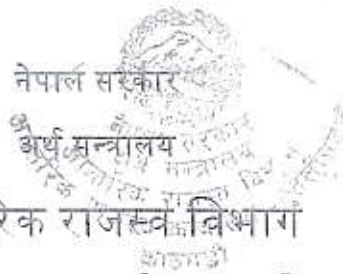 नेपाल सरकार
अर्थ मन्त्रालय
रिक राजस्व विभाग